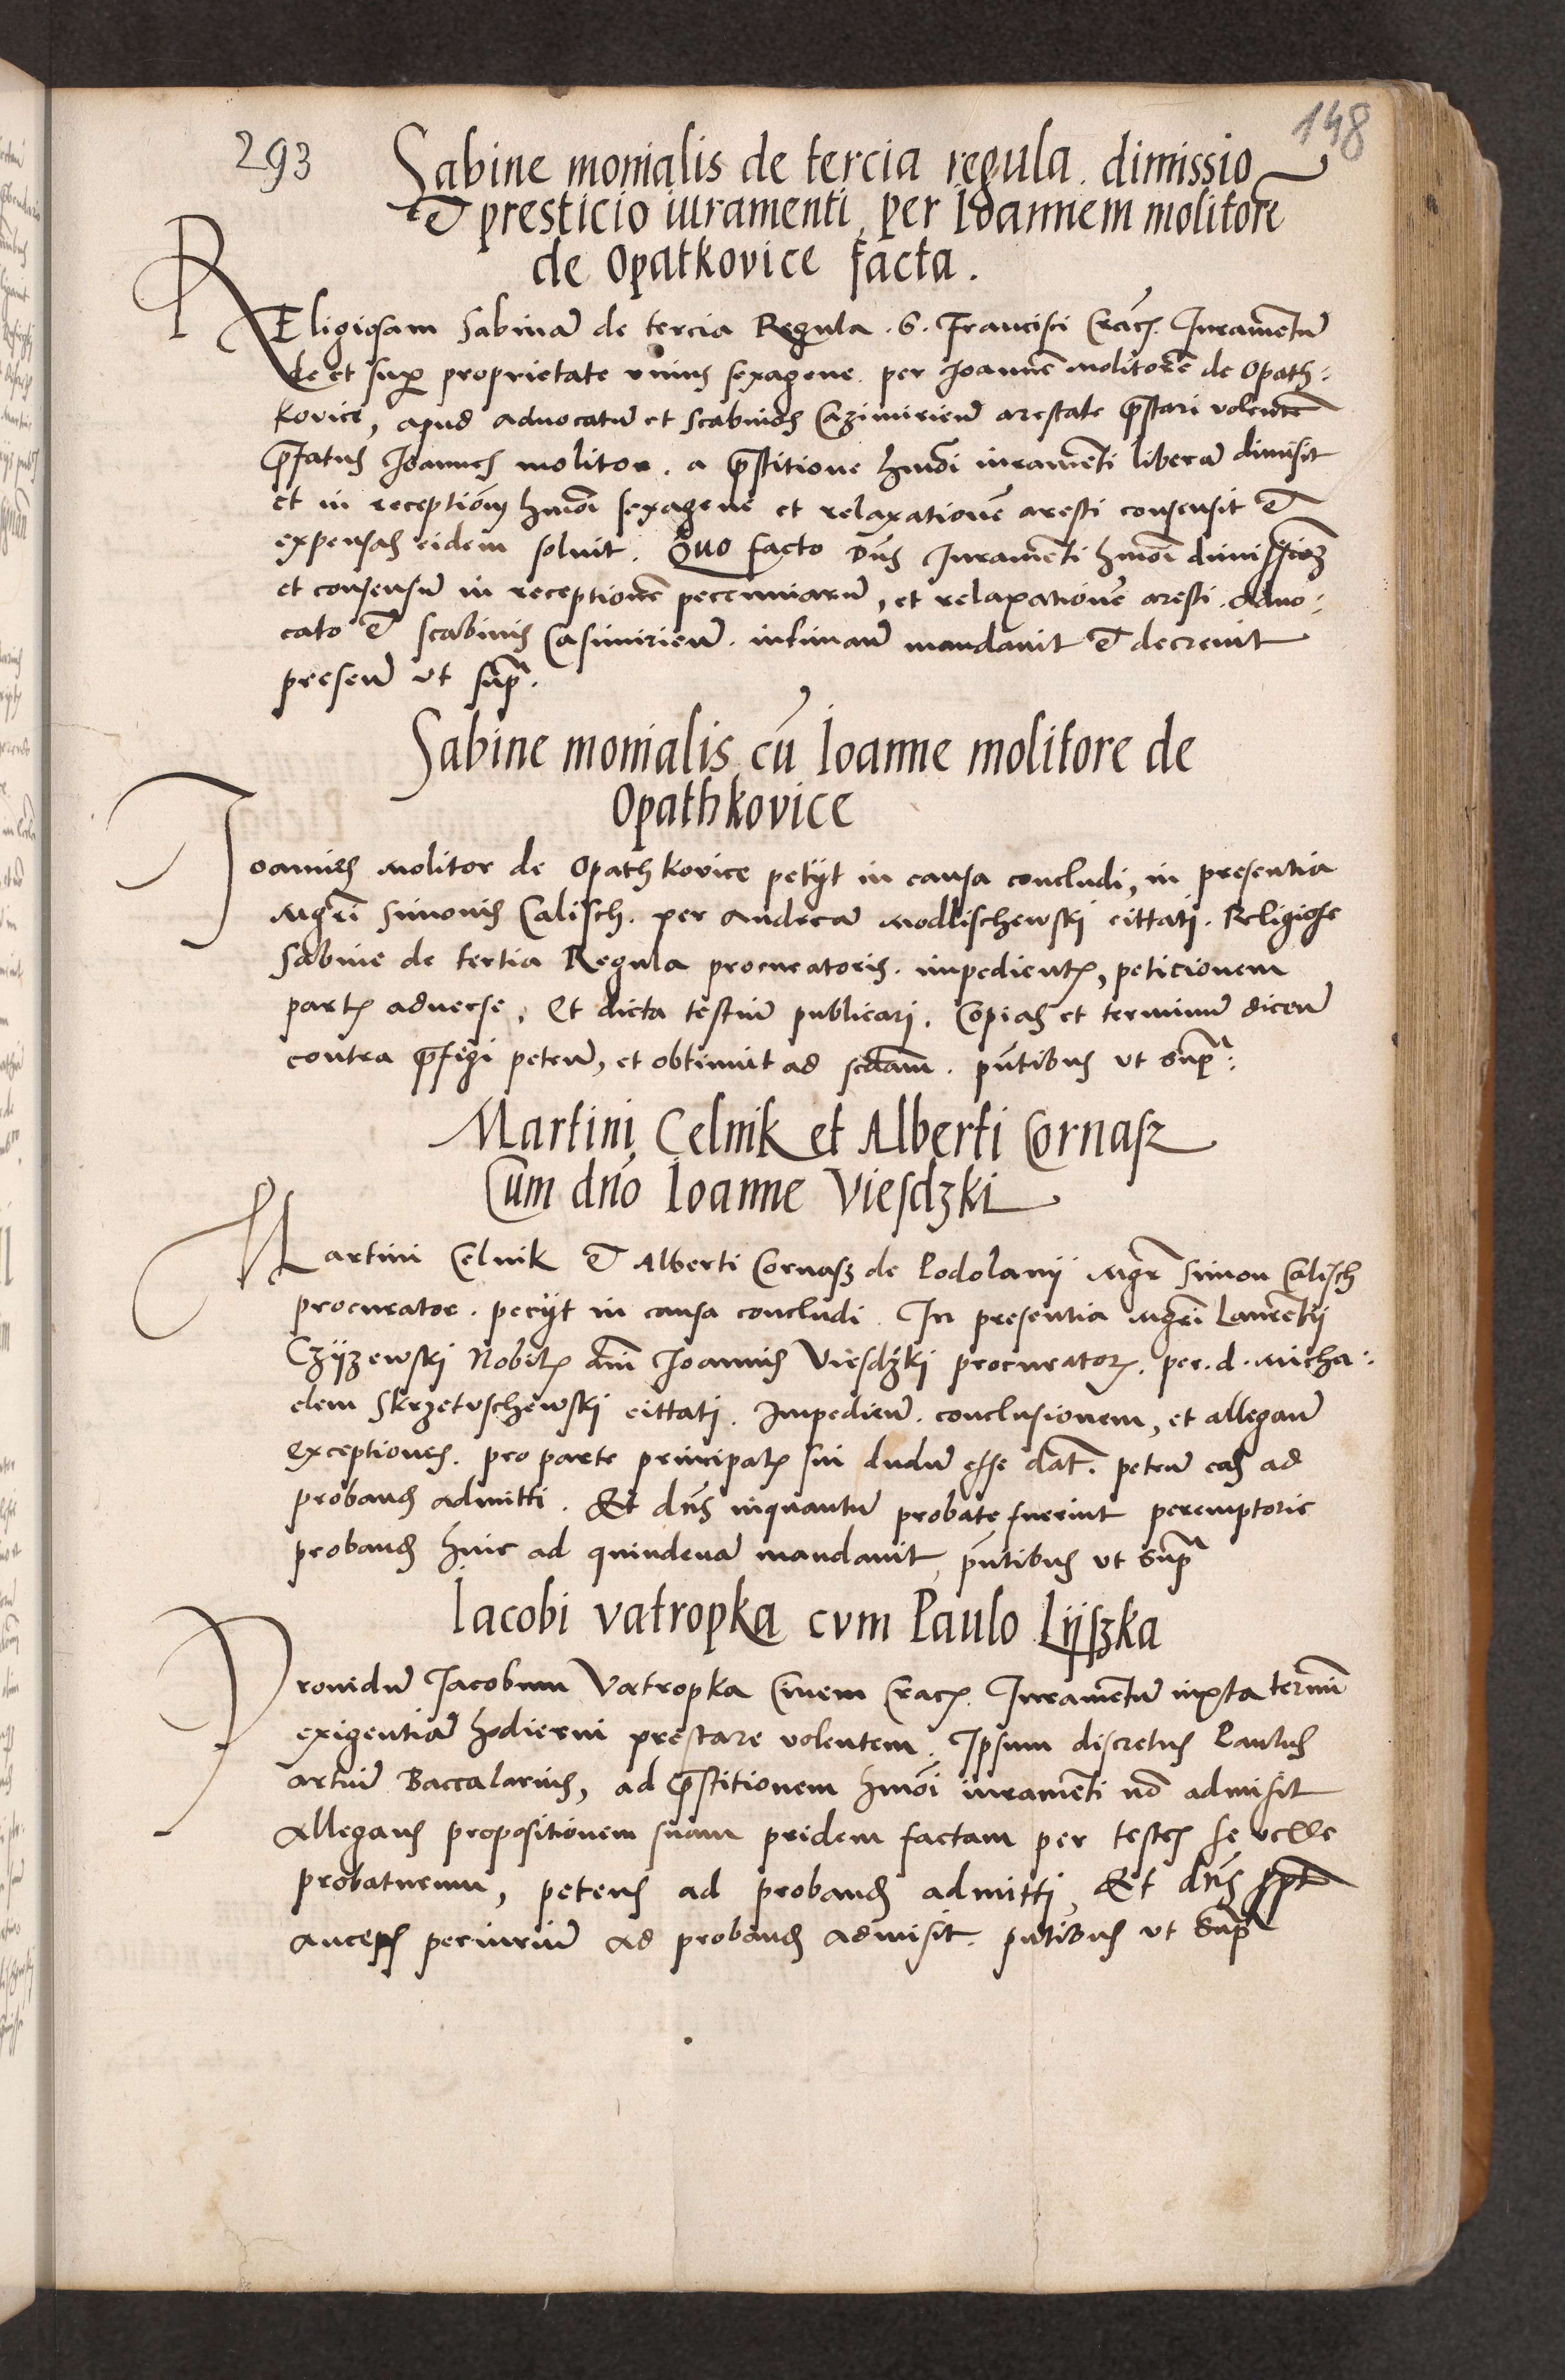 148
293 Sabine monialis de tercia regula. dimissio
et presticio iuramenti, per Ioannem molitorē
de Opatkovice facta.
REligiosam Sabinā de tercia Regula . S. Francisci Crac̄. Iuramentū
de et sup̱ proprietate vnius sexagene. per Joannē molitorē de Opath:
kovice, apud advocatū et scabinos Cazimirieñ arestate p̄stari volentē
p̄fatus Joannes molitor. a p̄stitione hmōi iuramenti liberā dimisit
et in receptionē hmōi sexagene et relaxationē aresti consensit et
expensas eidem soluit. Quo facto Dn̄s Iuramenti hmōi dimissionē
et consensū in receptionē pecuniarū, et relaxationē aresti. aduo:
cato et scabinis Casimirieñ. intimarī mandauit et decreuit
preseñ vt supᵃ.
Sabine monialis cū Ioanne molitore de
Opathkovice
Joannes Molitor de Opathkovice petijt in causa concludi, in presentia
Mgr̄i Simonis Calisch. per Andreā Modlischewskj cittatj. Religiose
Sabine de tertia Regula procuratoris. impedientꝭ, peticionem
partꝭ adverse, Et dicta testiū publicarj. Copias et terminū diceñ
contra p̄figi peteñ, et obtinuit ad scđam. pn̄tibus vt supᵃ:
Martini Celnik et Alberti Cornasz
Cum dn̄o Ioanne Viesdzki
Martini Celnik et Alberti Cornasz de Podolany Mgr̄ Simon Calisch
procurator. petijt in causa concludi. In presentia Mgr̄i Laurētij
Czyzewskj Nobilꝭ dn̄i Joannis Viesdzkj procuratorꝭ. per. d. Micha:
elem Skrzetvschewskj cittatj. Impedieñ. conclusionem, et allegañ
exceptiones. pro parte principalꝭ sui dudū esse dat̄. peteñ eas ad
probanđ admitti. Et dn̄s inquantū probate fuerint peremptorie
probanđ huic ad quindenā mandauit, pn̄tibus vt supᵃ
Iacobi vatropka cvm Paulo Lijszka
Prouidū Jacobum Vatropka Ciuem Cracꝭ. Iuramentū iuxta termīi
exigentiā hodierni prestare volentem. Ipsum discretus Paulus
artiū Baccalarius, ad p̄stitionem hmōi iuramenti nō admisit
Allegans propositionem suam pridem factam per testes se velle
probaturum, petens ad probanđ admitti, Et dn̄s
anceps periuriū ad probanđ admisit. pn̄tibus vt supᵃ